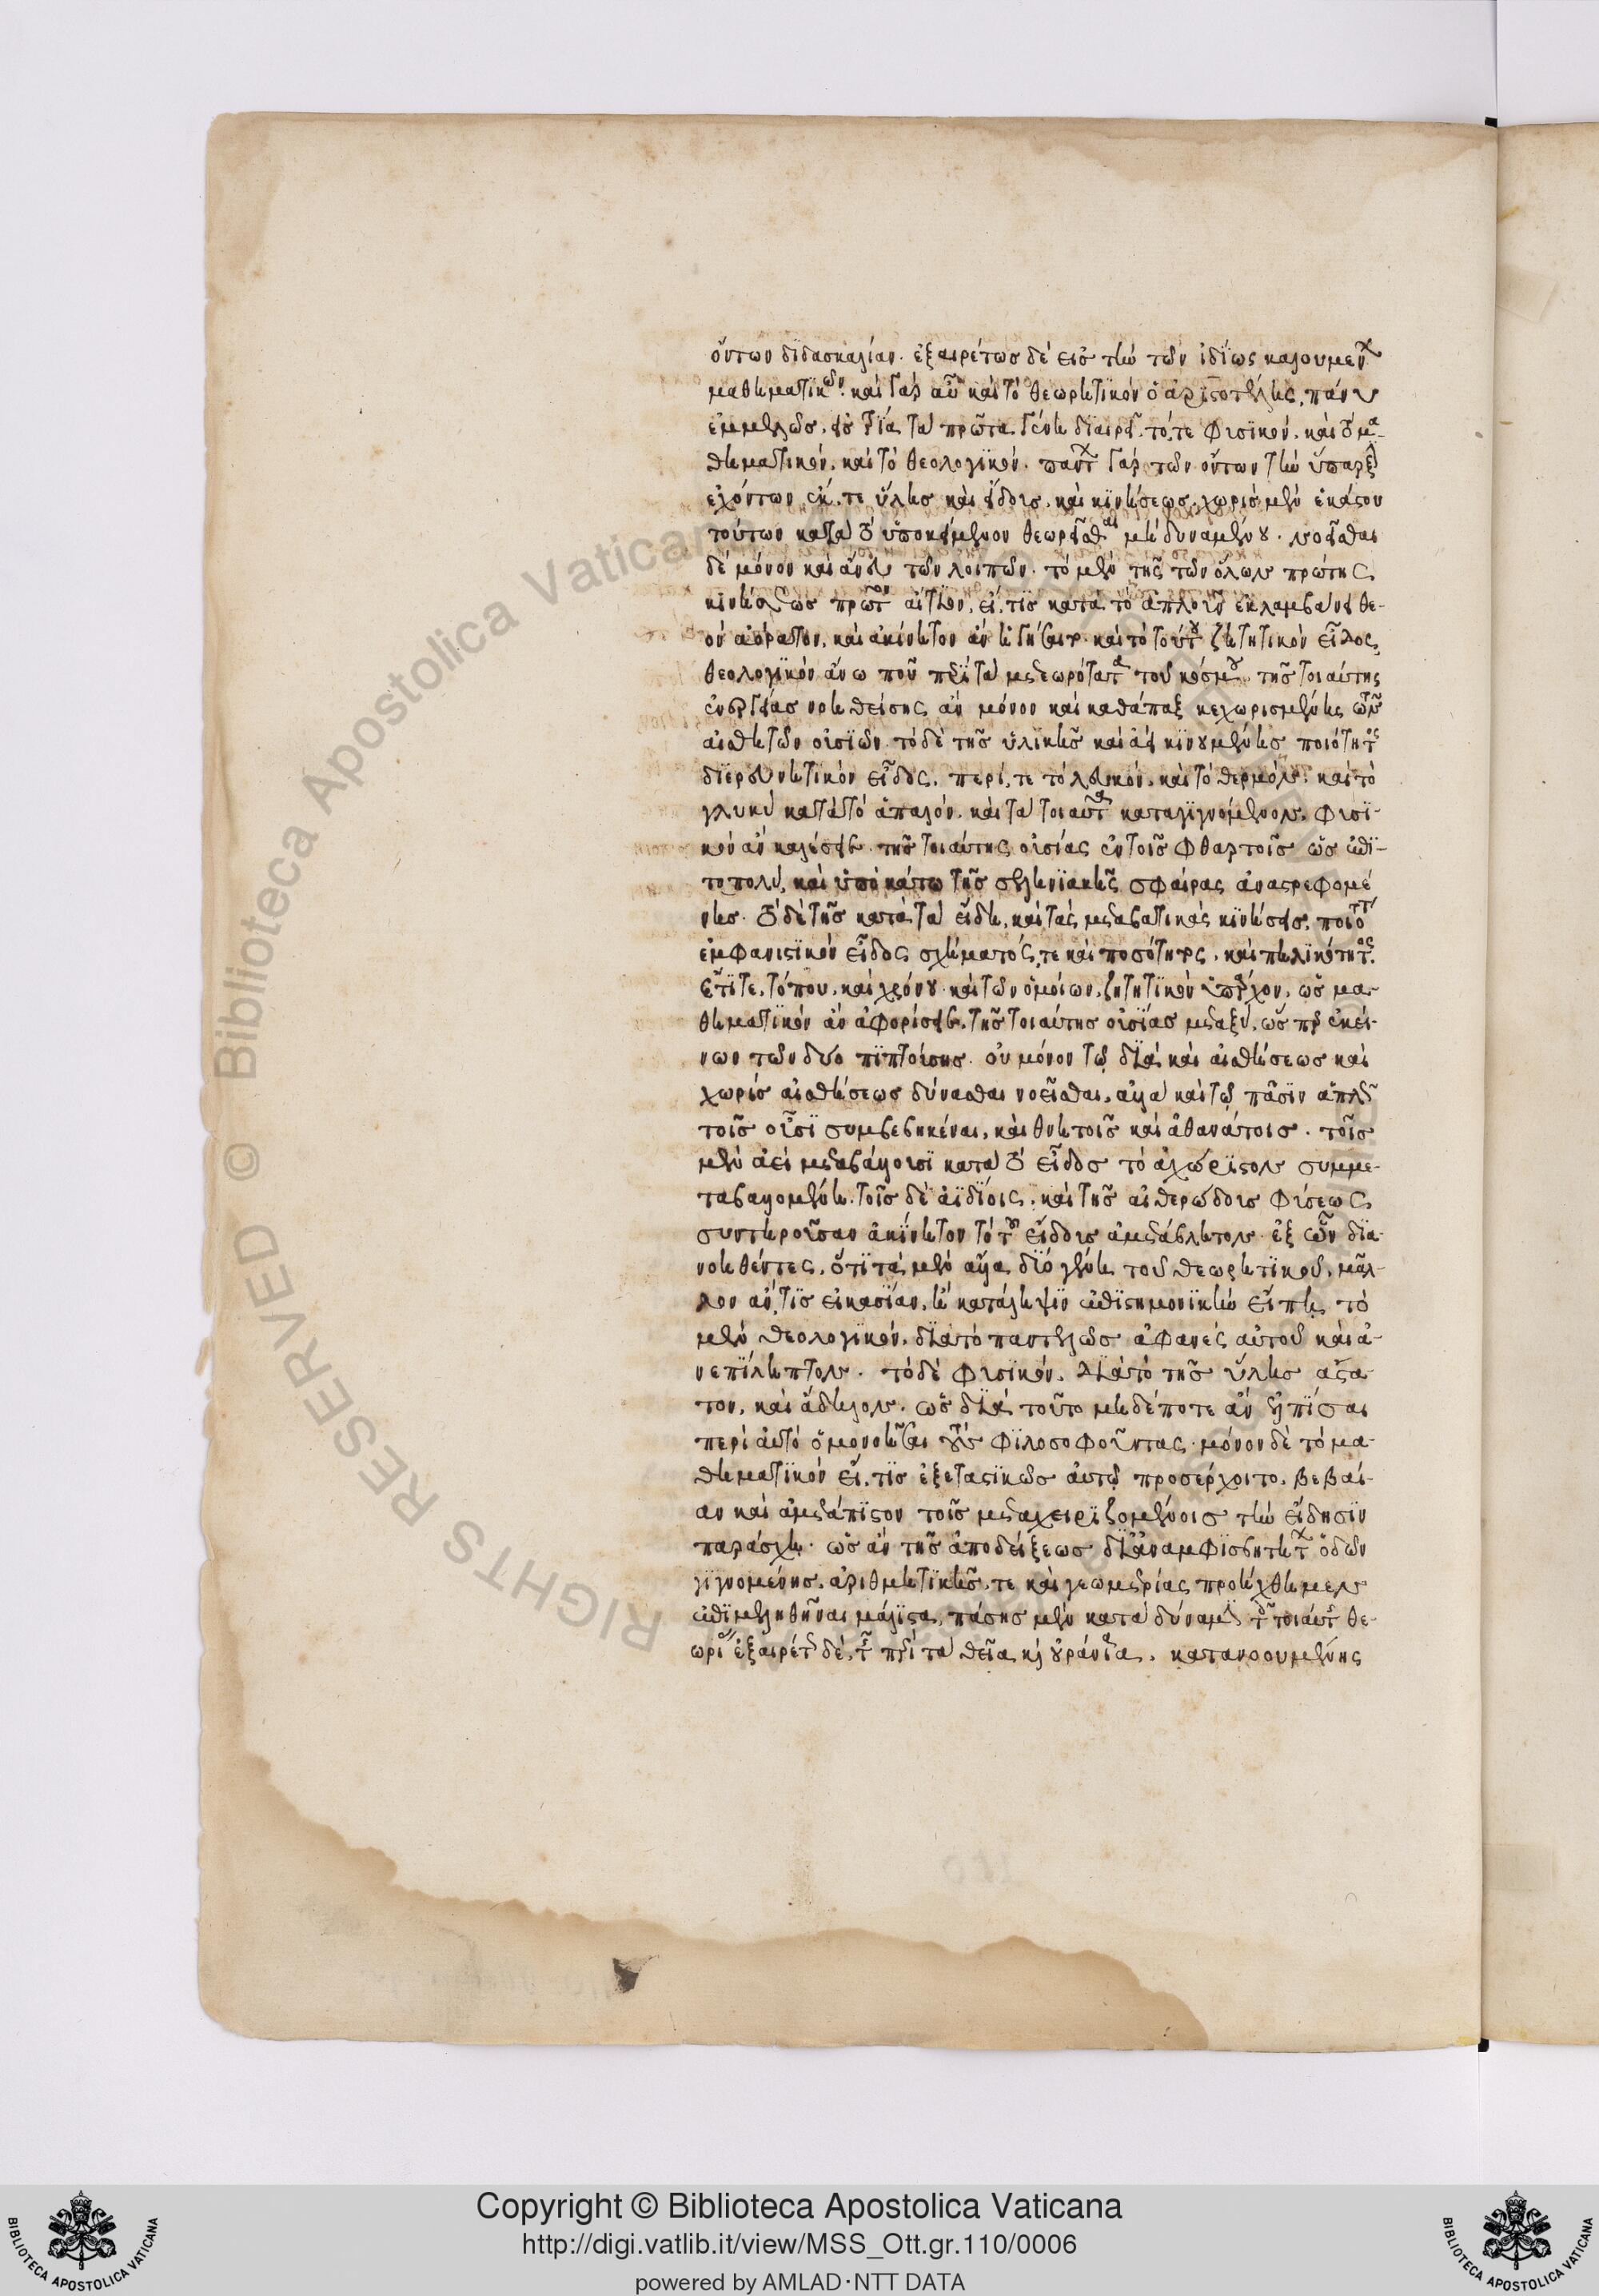 ὄντων διδασκαλίαν. ἐξαιρέτως δὲ εἰς τὴν τῶν ἰδίως καλουμένων
μαθηματικῶν. καὶ γὰρ αὖ καὶ τὸ θεωρητικὸν ὁ ἀριστοτέλης, πάνυ
ἐμμελῶς, εἰς τρία τὰ πρῶτα γένη διαιρεῖ. τό, τε φυσικόν. καὶ τὸ μα-
θηματικόν. καὶ τὸ θεολογικόν. πάντων γὰρ τῶν ὄντων τὴν ὕπαρξιν
ἐχόντων ἔκ, τε ὕλης καὶ εἴδους. καὶ κινήσεως. χωρὶς μὲν ἑκάστου
τούτων κατὰ τὸ ὑποκείμενον θεωρεῖσθαι μὴ δυναμένου. νοεῖσθαι
δὲ μόνον καὶ ἄνευ τῶν λοιπῶν. τὸ μὲν τῆς τῶν ὅλων πρώτης
κινήσεως πρῶτον αἴτιον, εἴ, τις κατὰ τὸ ἁπλοῦν ἐκλαμβάνοι θε-
ὸν ἀόρατον, καὶ ἀκίνητον ἂν ἡγήσαιτο. καὶ τὸ τούτου ζητητικὸν εἶδος
θεολογικὸν ἄνω που περὶ τὰ μετεωρότατα τοῦ κόσμου τῆς τοιαύτης
ἐνεργείας νοηθείσης ἂν μόνον καὶ καθάπαξ κεχωρισμένης τῶν
αἰσθητῶν οὐσιῶν. τὸ δὲ τῆς ὑλικῆς καὶ ἀεὶ κινουμένης ποιότητος
διερευνητικὸν εἶδος. περί, τε τὸ λευκόν. καὶ τὸ θερμόν. καὶ τὸ
γλυκὺ καὶ τὸ ἁπαλόν. καὶ τὰ τοιαῦτα καταγιγνόμενον. φυσι-
κὸν ἂν καλέσειε. τῆς τοιαύτης οὐσίας ἐν τοῖς φθαρτοῖς ὡς ἐπι-
τοπολύ, καὶ ὑποκάτω τῆς σεληνιακῆς σφαίρας ἀναστρεφομέ-
νης. τὸ δὲ τῆς κατὰ τὰ εἴδη, καὶ τὰς μεταβατικὰς κινήσεις, ποιότητος
ἐμφανιστικὸν εἶδος σχήματός, τε καὶ ποσότητος. καὶ πηλικότητος.
ἔτι τε, τόπου, καὶ χρόνου. καὶ τῶν ὁμοίων, ζητητικὸν ὑπάρχον, ὡς μα-
θηματικὸν ἂν ἀφορίσειε. τῆς τοιαύτης οὐσίας μεταξύ, ὥσπερ ἐκεί-
νων τῶν δύο πιπτούσης. οὐ μόνον τῷ διὰ καὶ αἰσθήσεως καὶ
χωρὶς αἰσθήσεως δύνασθαι νοεῖσθαι, ἀλλὰ καὶ τῷ πᾶσιν ἁπλῶς
τοῖς οὖσι συμβεβηκέναι, καὶ θνητοῖς καὶ ἀθανάτοις. τοῖς
μὲν ἀεὶ μεταβάλλουσι κατὰ τὸ εἶδος τὸ ἀχώριστον συμμε-
ταβαλλομένη. τοῖς δὲ ἀϊδίοις. καὶ τῆς αἰθερώδους φύσεως
συντηροῦσαν ἀκίνητον τὸ τοῦ εἴδους ἀμετάβλητον. ἐξ ὧν δια-
νοηθέντες, ὅτι τὰ μὲν ἄλλα δύο γένη τοῦ θεωρητικοῦ, μᾶλ-
λον ἄν, τις εἰκασίαν, ἢ κατάληψιν ἐπιστημονικὴν εἴποι, τὸ
μὲν θεολογικόν, διὰ τὸ παντελῶς ἀφανὲς αὐτοῦ καὶ ἀ-
νεπίληπτον. τὸ δὲ φυσικόν. διὰ τὸ τῆς ὕλης ἄστα-
τον, καὶ ἄδηλον. ὡς διὰ τοῦτο μηδέποτε ἂν ἐλπίσαι
περὶ αὐτὸ ὁμονοῆσαι τοὺς φιλοσοφοῦντας. μόνον δὲ τὸ μα-
θηματικὸν εἴ, τις ἐξεταστικῶς αὐτῷ προσέρχοιτο, βεβαί-
αν καὶ ἀμετάπιστον τοῖς μεταχειριζομένοις τὴν εἴδησιν
παράσχοι. ὡς ἂν τῆς ἀποδείξεως δι' ἀναμφισβητήτων ὁδῶν
γιγνομένης, ἀριθμητικῆς, τε καὶ γεωμετρίας προήχθημεν
ἐπιμεληθῆναι μάλιστα, πάσης μὲν κατὰ δύναμιν τῆς τοιαύτης θε-
ωρίας ἐξαιρέτως δέ, τῆς περὶ τὰ θεῖα καὶ οὐράνια. κατανοουμένης
Copyright © Biblioteca Apostolica Vaticana
http://digi.vatlib.it/view/MSS_Ott.gr.110/0006
powered by AMLAD·NTT DATA